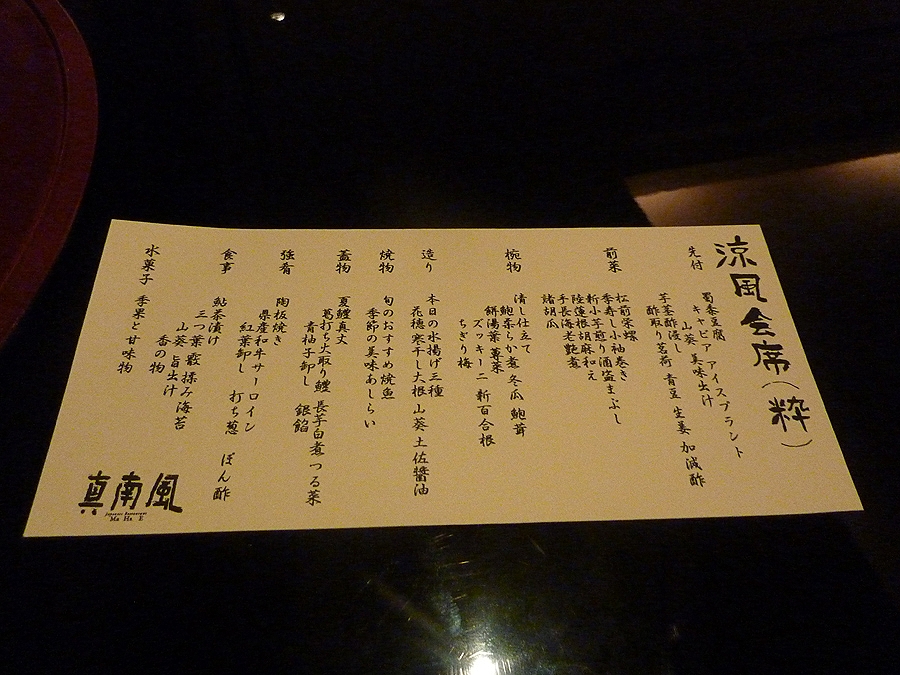 涼風会席（粋）
先付
蜀黍豆腐
キャビア アイスプラント
山葵 美味出汁
芋茎酢浸し
酢取り茗荷 青豆 生姜 加減酢
前菜
松前栄螺
季寿し小袖巻き
新小芋煎り酒盗まぶし
陸蓮根胡麻和え
手長海老艶煮
諸胡瓜
椀物
清し仕立て
鮑柔らか煮 冬瓜 鮑茸
餅陽葉 蓴菜
ズッキーニ 新百合根
ちぎり梅
造り
本日の水揚げ三種
花穂 寒干し大根 山葵 土佐醤油
焼物
旬のおすすめ焼魚
季節の美味あしらい
蓋物
夏鱧真丈
葛打ち火取り鱧 長芋白煮 つる菜
青柚子卸し 銀餡
強肴
陶板焼き
県産和牛サーロイン
紅葉卸し 打ち葱 ぽん酢
食事
鮎茶漬け
三つ葉 霰 揉み海苔
山葵 旨出汁
香の物
水菓子
季果と甘味物
真南風
Japanese Restaurant
Ma Ha E